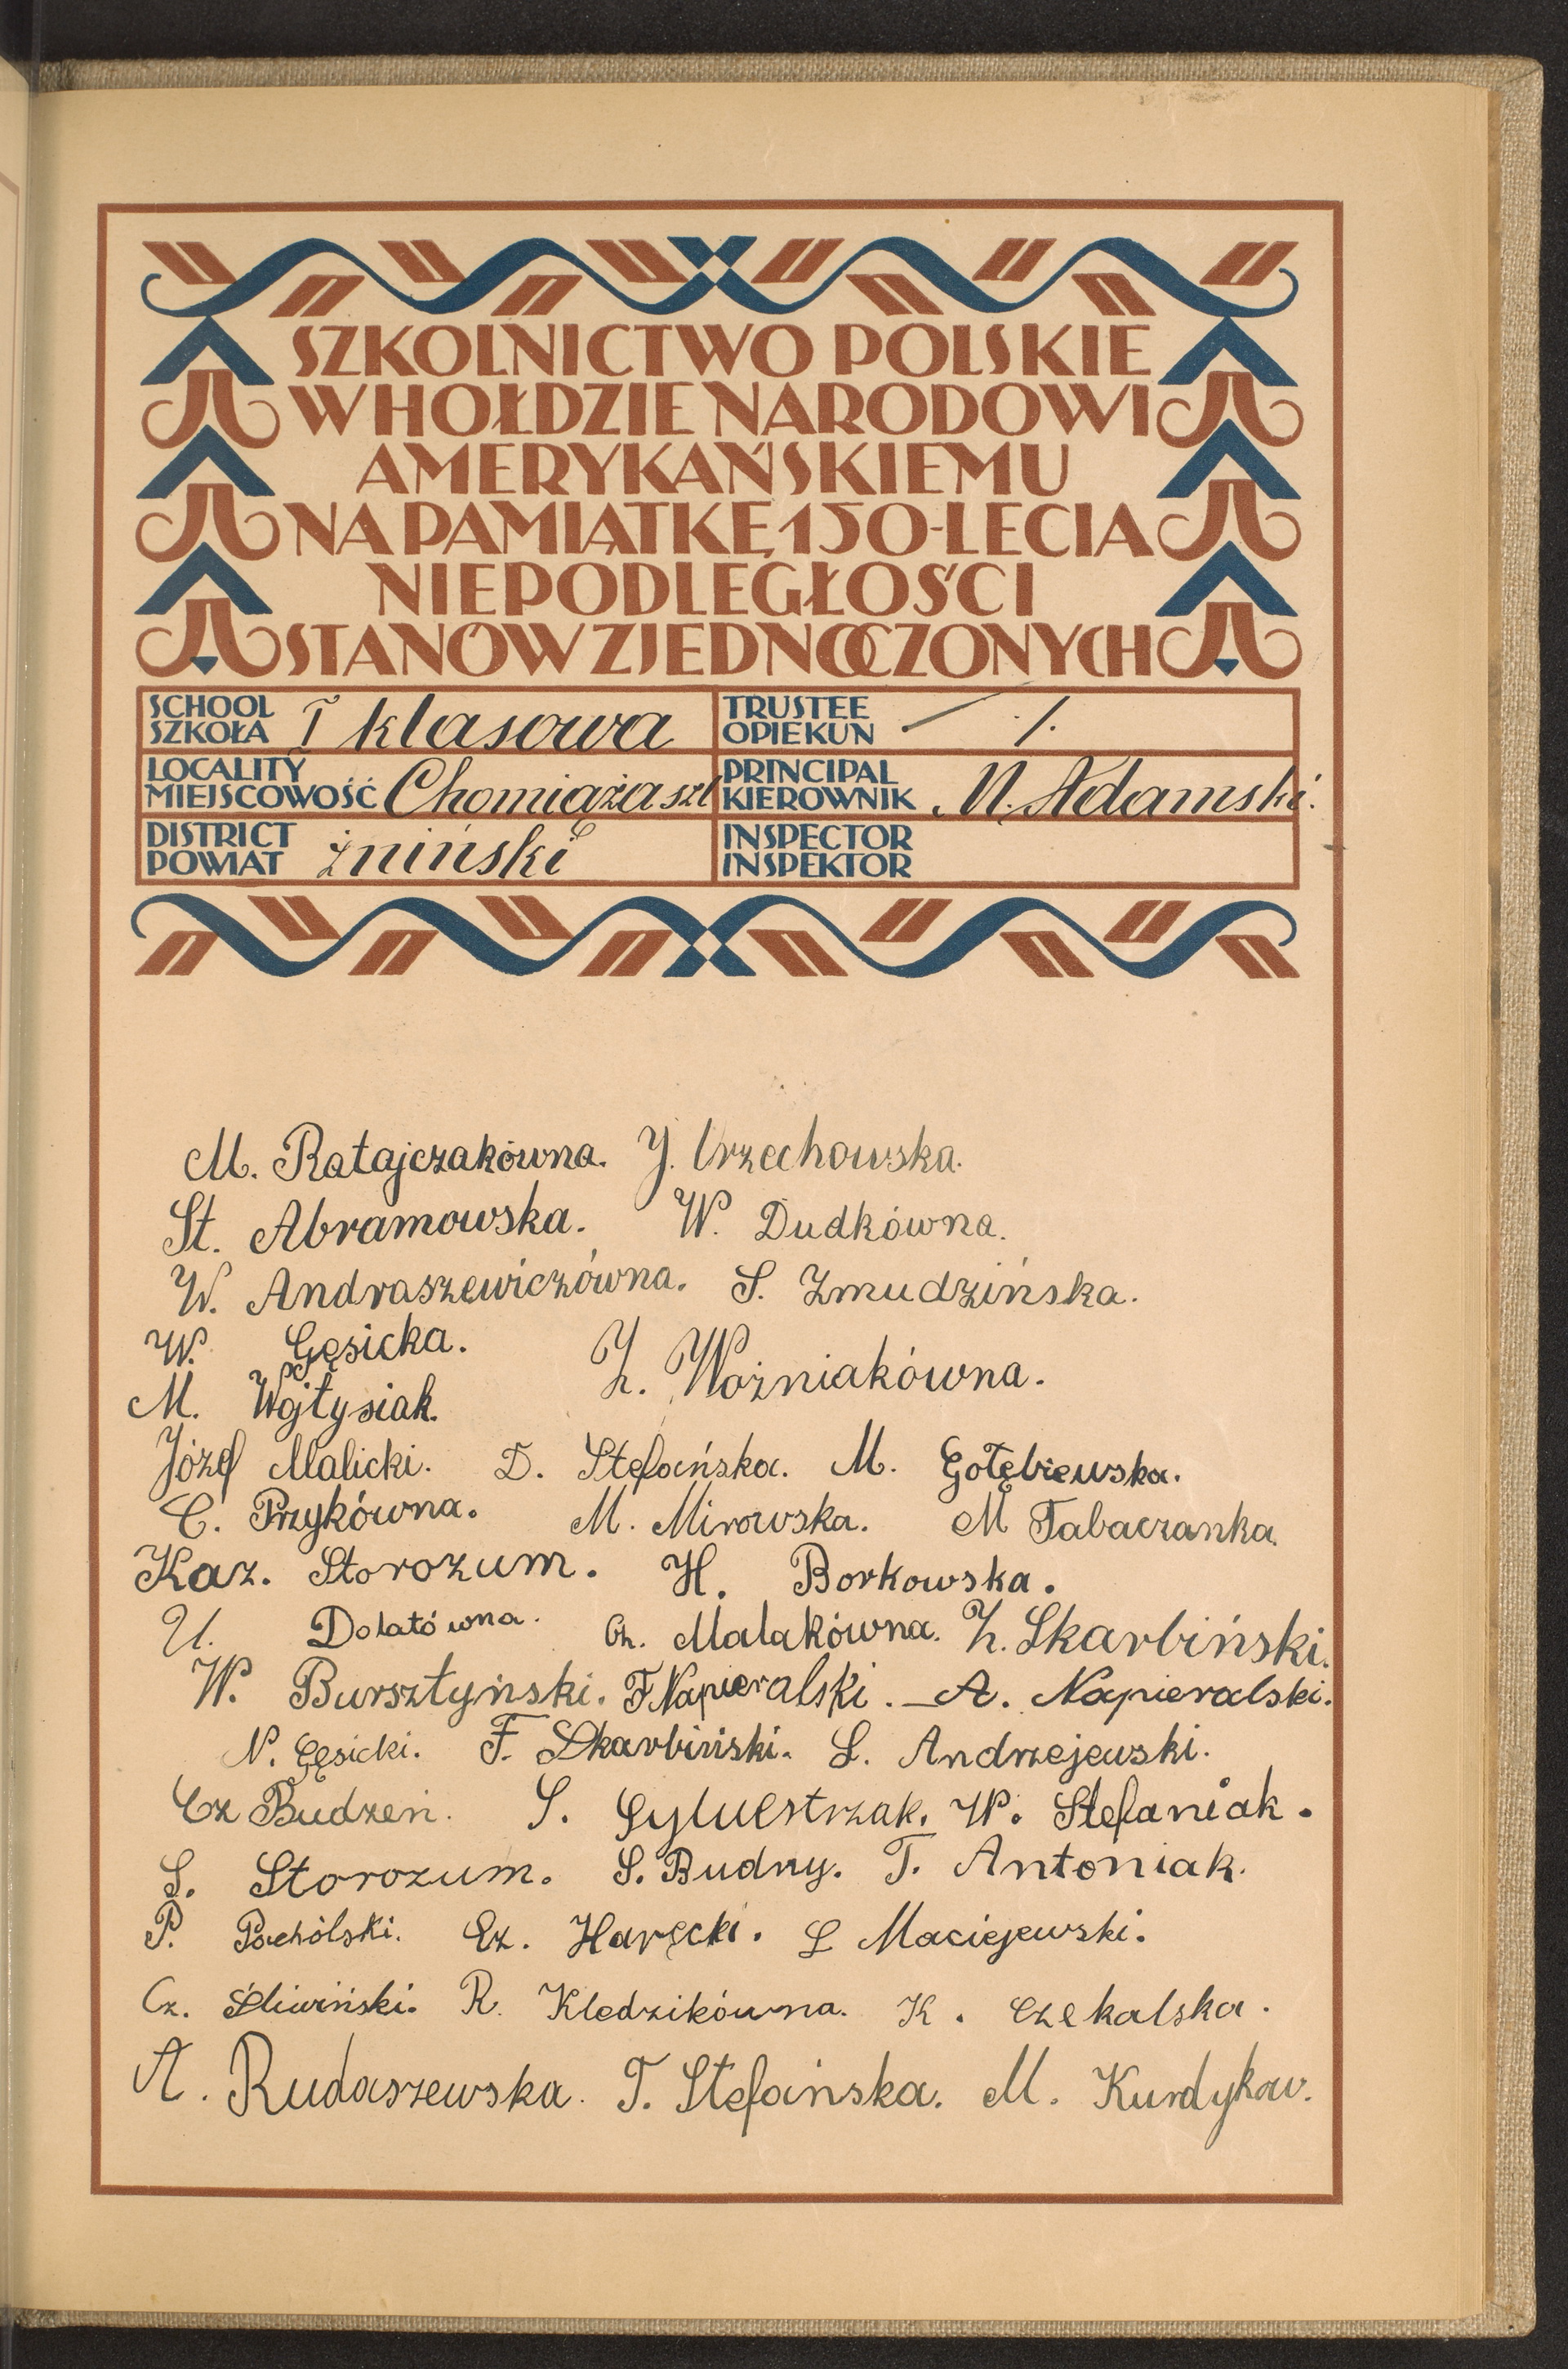 SZKOLNICTWO POLSKIE
W HOŁDZIE NARODOWI
AMERYKAŃSKIEMU
NA PAMIĄTKĘ 150-LECIA
NIEPODLEGŁOŚCI
STANÓW ZJEDNOCZONYCH
SCHOOL SZKOŁA I klasowa TRUSTEE OPIEKUN — /.
LOCALITY MIEJSCOWOŚĆ Chomiąża szl PRINCIPAL KIEROWNIK M. Adamski.
DISTRICT POWIAT żniński INSPECTOR INSPEKTOR
M. Ratajczakówna. J. Orzechowska.
St. Abramowska. W. Dudkówna.
W. Andraszewiczówna. S. Zmudzińska.
W. Gęsicka. Z. Woźniakówna.
M. Wojtysiak.
Józef Malicki. D. Stefańska. M. Gołębiewska.
C. Przykówna. M. Mirowska. M Tabaczanka.
Kaz. Storozum. H. Borkowska.
U. Dolatówna. Malakówna. Z. Skarbiński.
W. Bursztyński. F Napieralski. A. Napieralski.
N. Gęsicki. F. Skarbiński. L. Andrzejewski.
Cz Budzeń. S. Sylwestrzak. W. Stefaniak.
S. Storozum. S. Budny. T. Antoniak.
P. Pochólski. Cz. Haręcki. L Maciejewski.
Cz. Śliwiński. R. Kledzikówna. K. Czekalska.
A. Rudaszewska. T. Stefańska. M. Kurdykow.